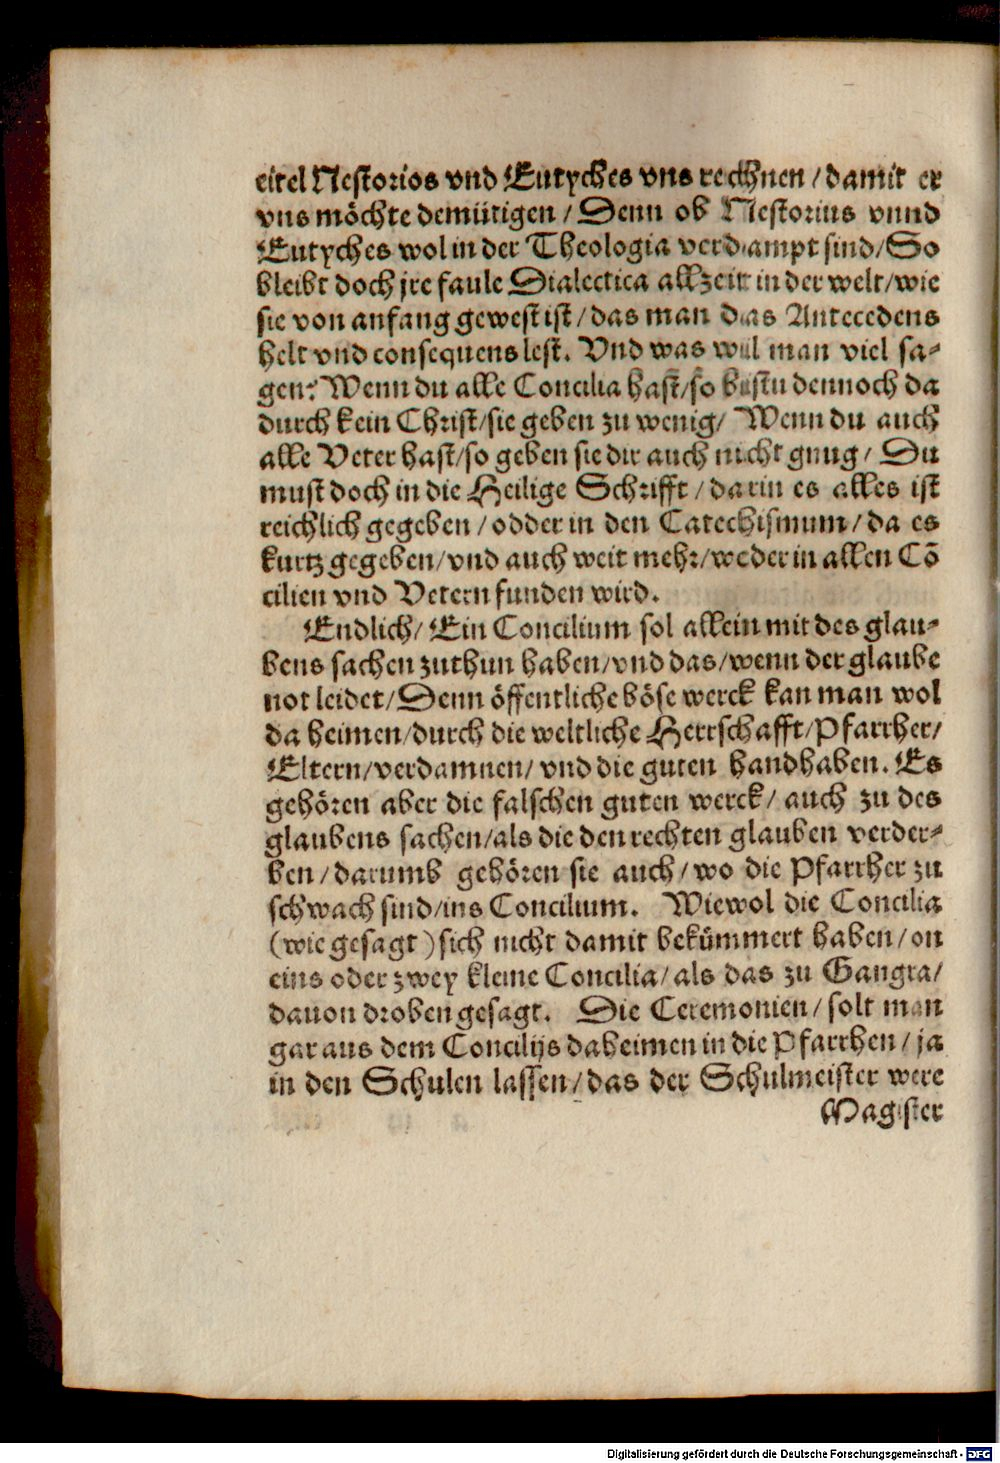 eitel Nestorios vnd Eutyches vns rechnen / damit er
vns möchte demütigen / Denn ob Nestorius vnnd
Eutyches wol in der Theologia verdampt sind / So
bleibt doch jre faule Dialectica allzeit in der welt / wie
sie von anfang gewest ist / das man das Antecedens
helt vnd consequens lest. Vnd was wil man viel sa-
gen? Wenn du alle Concilia hast / so bistu dennoch da
durch kein Christ / sie geben zu wenig / Wenn du auch
alle Veter hast / so geben sie dir auch nicht gnug / Du
must doch in die Heilige Schrifft / darin es alles ist
reichlich gegeben / odder in den Catechismum / da es
kurtz gegeben / vnd auch weit mehr / weder in allen Cō
cilien vnd Vetern funden wird.
Endlich / Ein Concilium sol allein mit des glau-
bens sachen zuthun haben / vnd das / wenn der glaube
not leidet / Denn öffentliche böse werck kan man wol
da heimen / durch die weltliche Herrschafft / Pfarrher /
Eltern / verdamnen / vnd die guten handhaben. Es
gehören aber die falschen guten werck / auch zu des
glaubens sachen / als die den rechten glauben verder-
ben / darumb gehören sie auch / wo die Pfarrher zu
schwach sind / ins Concilium. Wiewol die Concilia
(wie gesagt) sich nicht damit bekümmert haben / on
eins oder zwey kleine Concilia / als das zu Gangra /
dauon droben gesagt. Die Ceremonien / solt man
gar aus dem Concilijs daheimen in die Pfarrhen / ja
in den Schulen lassen / das der Schulmeister were
Magister
Digitalisierung gefördert durch die Deutsche Forschungsgemeinschaft - DFG